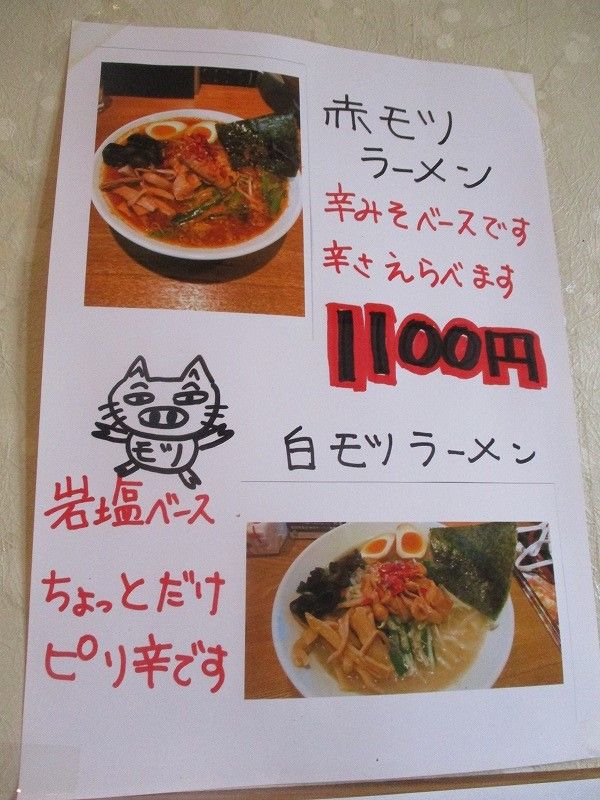 赤モツ
ラーメン
辛みそベースです
辛さえらべます
1100円
モツ
白モツラーメン
岩塩ベース
ちょっとだけ
ピリ辛です